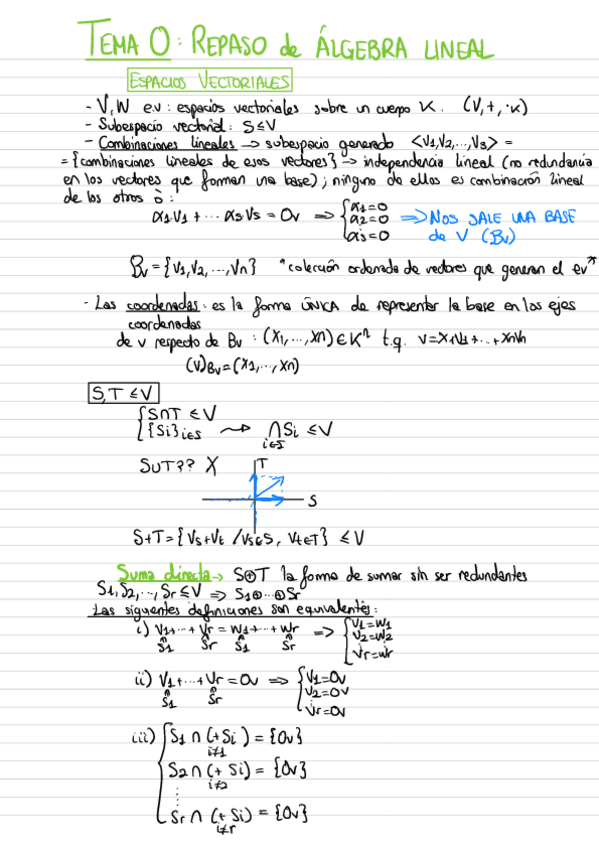 TEMA 0: REPASO de ÁLGEBRA LINEAL
ESPACIOS VECTORIALES
- V, W e.v: espacios vectoriales sobre un cuerpo K. (V,+,·K)
- Subespacio vectorial: S≤V
- Combinaciones lineales → subespacio generado <V1,V2,...,Vs> =
= {combinaciones lineales de esos vectores} → independencia lineal (no redundancia
en los vectores que forman una base); ninguno de ellos es combinación lineal
de los otros ó:
α1V1 + ··· αsVs = 0v ⇒ { α1=0
α2=0 ⇒ NOS SALE UNA BASE
αs=0 de V (Bv)
Bv = {V1,V2,...,Vn} *colección ordenada de vectores que generan el ev*
- Las coordenadas: es la forma ÚNICA de representar la base en los ejes
coordenadas
de v respecto de Bv: (X1,...,Xn) ∈ K^n t.q. v=X1V1+...+XnVn
(v)Bv=(X1,...,Xn)
S,T ≤ V
{ S∩T ≤ V
{Si}i∈S ⇝ ∩Si ≤ V
i∈I
SUT?? X
T
S
S+T={Vs+Vt / Vs∈S, Vt∈T} ≤ V
Suma directa → S⊕T la forma de sumar sin ser redundantes
S1,S2,...,Sr ≤ V ⇒ S1⊕···⊕Sr
Las siguientes definiciones son equivalentes:
i) V1+···+Vr = W1+···+Wr ⇒ { V1=W1
V2=W2
S1 Sr S1 Sr
Vr=Wr
ii) V1+...+Vr = 0v ⇒ { V1=0v
V2=0v
S1 Sr
Vr=0v
iii) { S1 ∩ (+Si) = {0v}
i≠1
S2 ∩ (+ Si) = {0v}
i≠2
⋮
Sr ∩ (+ Si) = {0v}
i≠r